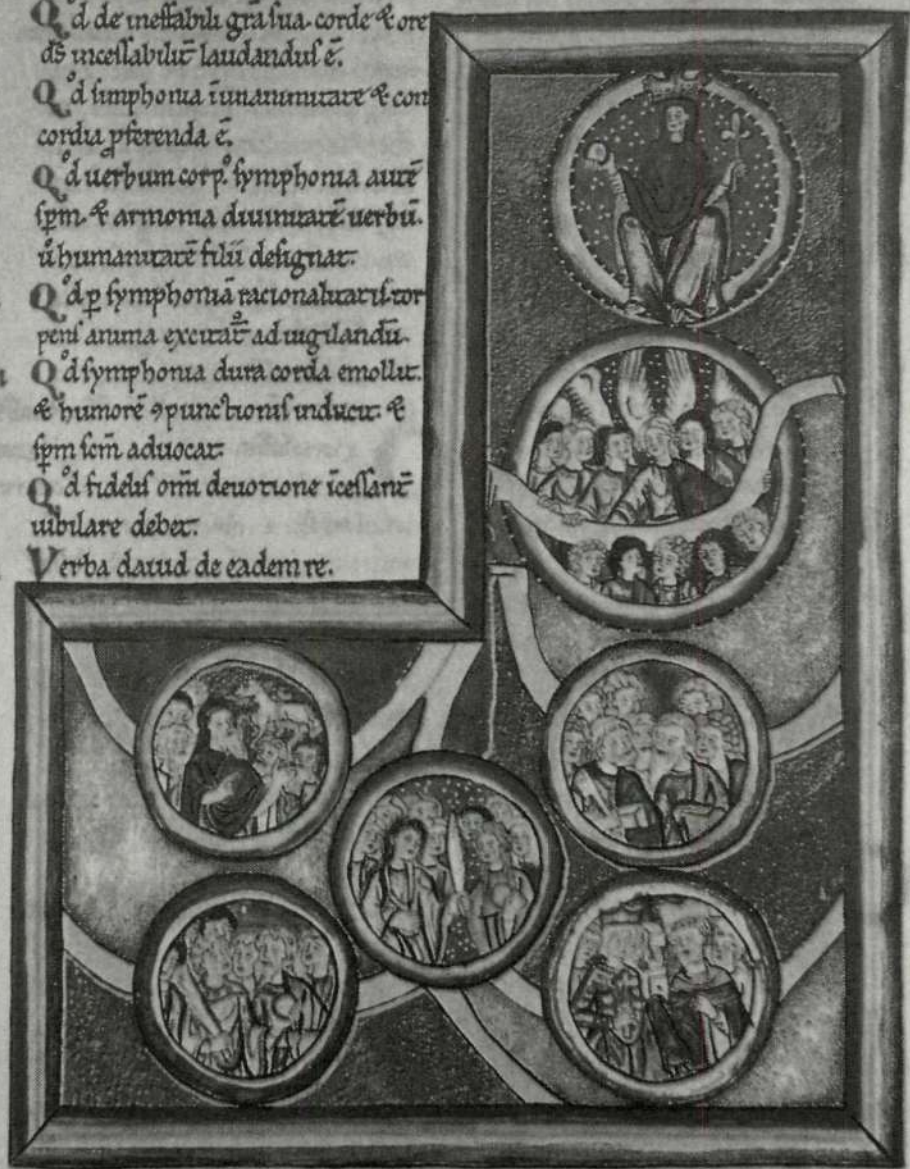 Qd de ineffabili gr̃a sua. corde & ore
ds̄ incessabilit̄ laudandus ē.
Qd simphonia ī unanimitate & con
cordia p̄ferenda ē.
Qd uerbum corp᷒. symphonia autē
sp̄m. & armonia diuinitatē. uerbū.
u᷒ humanitatē filii designat.
Qd p̱ symphoniā racionalitatis tor
pens anima excitat᷑ ad uigilandū.
Qd symphonia dura corda emollit.
& humorē ꝯpunctionis inducit. &
sp̄m sc̄m aduocat.
Qd fidelis om̄i deuotione īcessant̄
iubilare debet.
Verba dauid de eadem re.